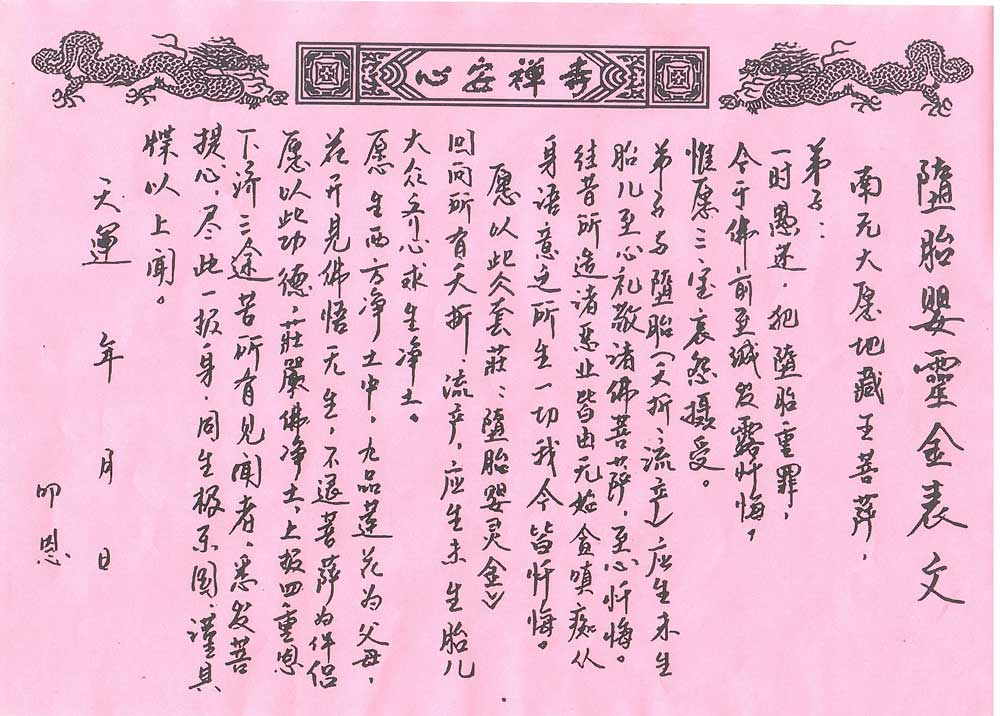 壽禪安心
墮胎嬰靈金表文
南无大愿地藏王菩萨，
弟子：
一时愚迷，犯墮胎重罪，
今于佛前至诚发露忏悔，
惟愿三宝哀怨攝受。
弟子与墮胎（夭折、流产）应生未生
胎儿至心礼敬诸佛菩萨，至心忏悔。
往昔所造诸恶业皆由无始贪嗔痴从
身语意之所生一切我今皆忏悔。
愿以此
莊：墮胎嬰灵金》
回向所有夭折、流产，应生未生胎儿
大众齐心求生净土。
愿生西方净土中，九品莲花为父母，
花开见佛悟无生，不退菩萨为伴侣
愿以此功德，莊嚴佛净土，上报四重恩
下济三途苦所有见闻者，悉发菩
提心，尽此一报身，同生极乐国，谨具
牒以上聞。
天運 年 月 日
叩恩